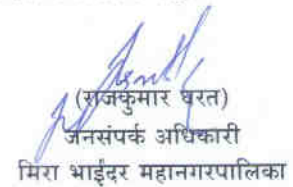 (राजकुमार घरत)
जनसंपर्क अधिकारी
मिरा भाईंदर महानगरपालिका